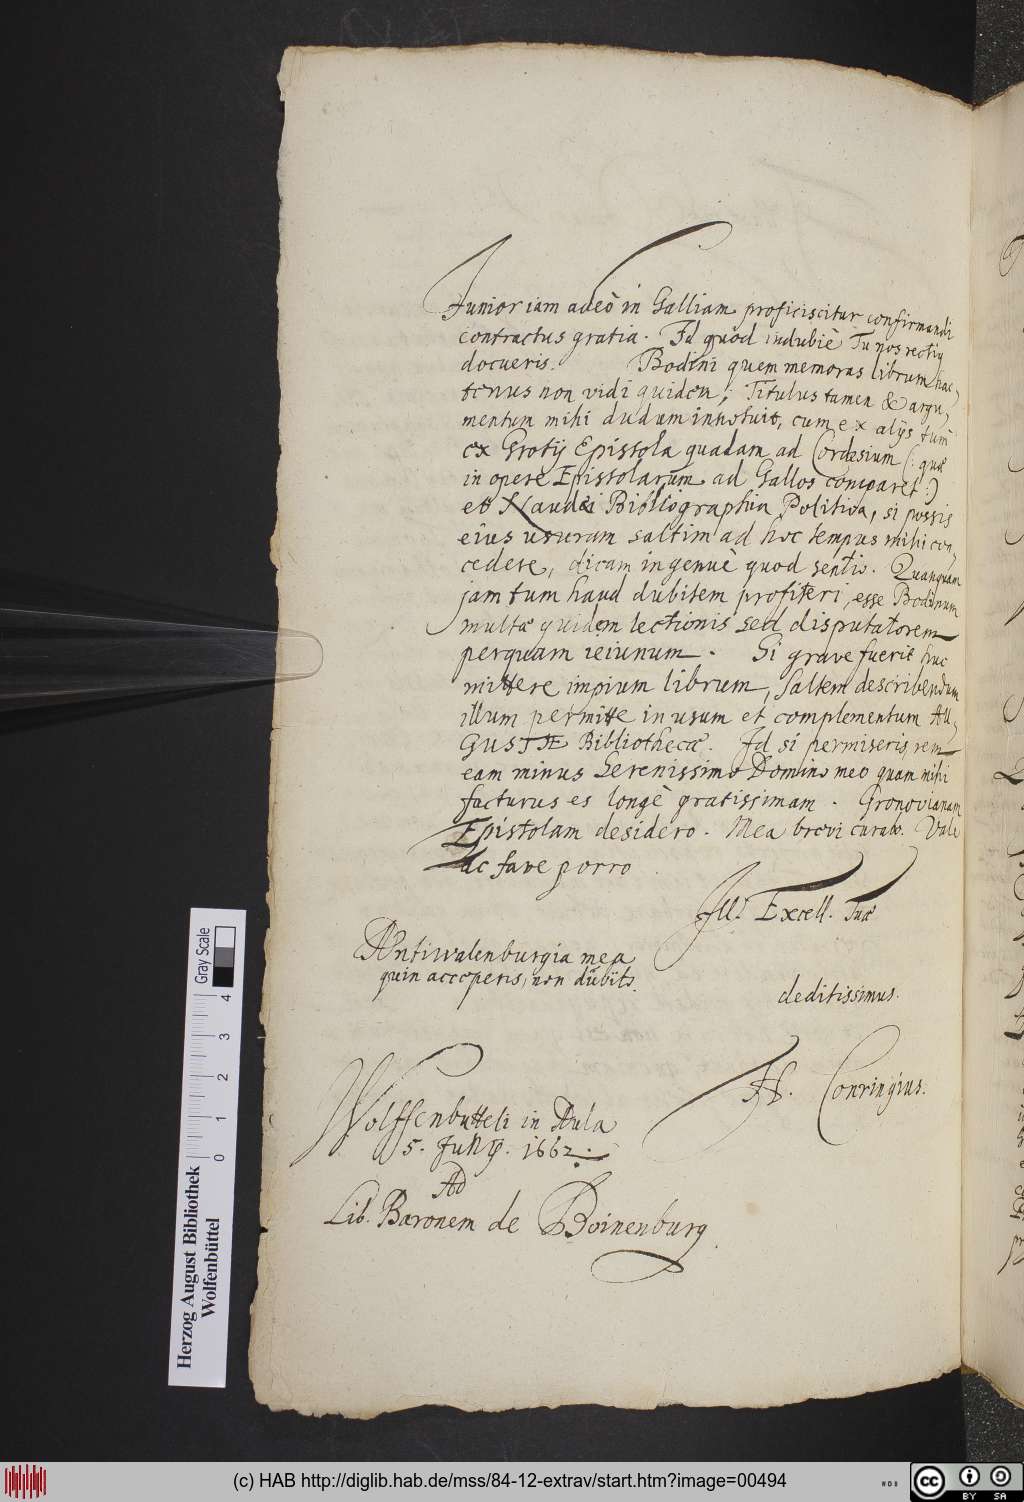 Junior iam adeò in Galliam proficiscitur confirmandi
contractus gratia. Id quod indubiè Tu nos rectiq
docueris. Bodini quem memoras librum hac,
tenus non vidi quidem; Titulus tamen & argu,
mentum mihi dudum innotuit, cum ex alijs tum
ex Grotij Epistola quadam ad Cordesium (: quæ
in opere Epistolarum ad Gallos comparet :)
et Naudæi Bibliographia Politica, si possis
eius usuram saltim ad hoc tempus mihi con,
cedere, dicam ingenuè quod sentio. Quanquam
jam tum haud dubitem profiteri, esse Bodinum
multæ quidem lectionis sed disputatorem
perquam ieiunum. Si grave fuerit huc
mittere impium librum, saltem describendum
illum permitte in usum et complementum AU,
GUSTÆ Bibliothecæ. Id si permiseris, rem
eam minus Serenissimo Domino meo quam mihi
facturus es longè gratissimam. Gronovianam
Epistolam desidero. Mea brevi curabo. Vale
ac fave porro
Ill. Excell. Tuæ
Antiwalenburgia mea
quin acceperis, non dubito.
deditissimus.
H. Conringius.
Wolffenbutteli in Aula
5. Junij. 1662.
Ad
Lib. Baronem de Boinenburg.
Herzog August Bibliothek
Wolfenbüttel
0 1 2 3 4
Gray Scale
(c) HAB http://diglib.hab.de/mss/84-12-extrav/start.htm?image=00494
WDB
CC BY SA